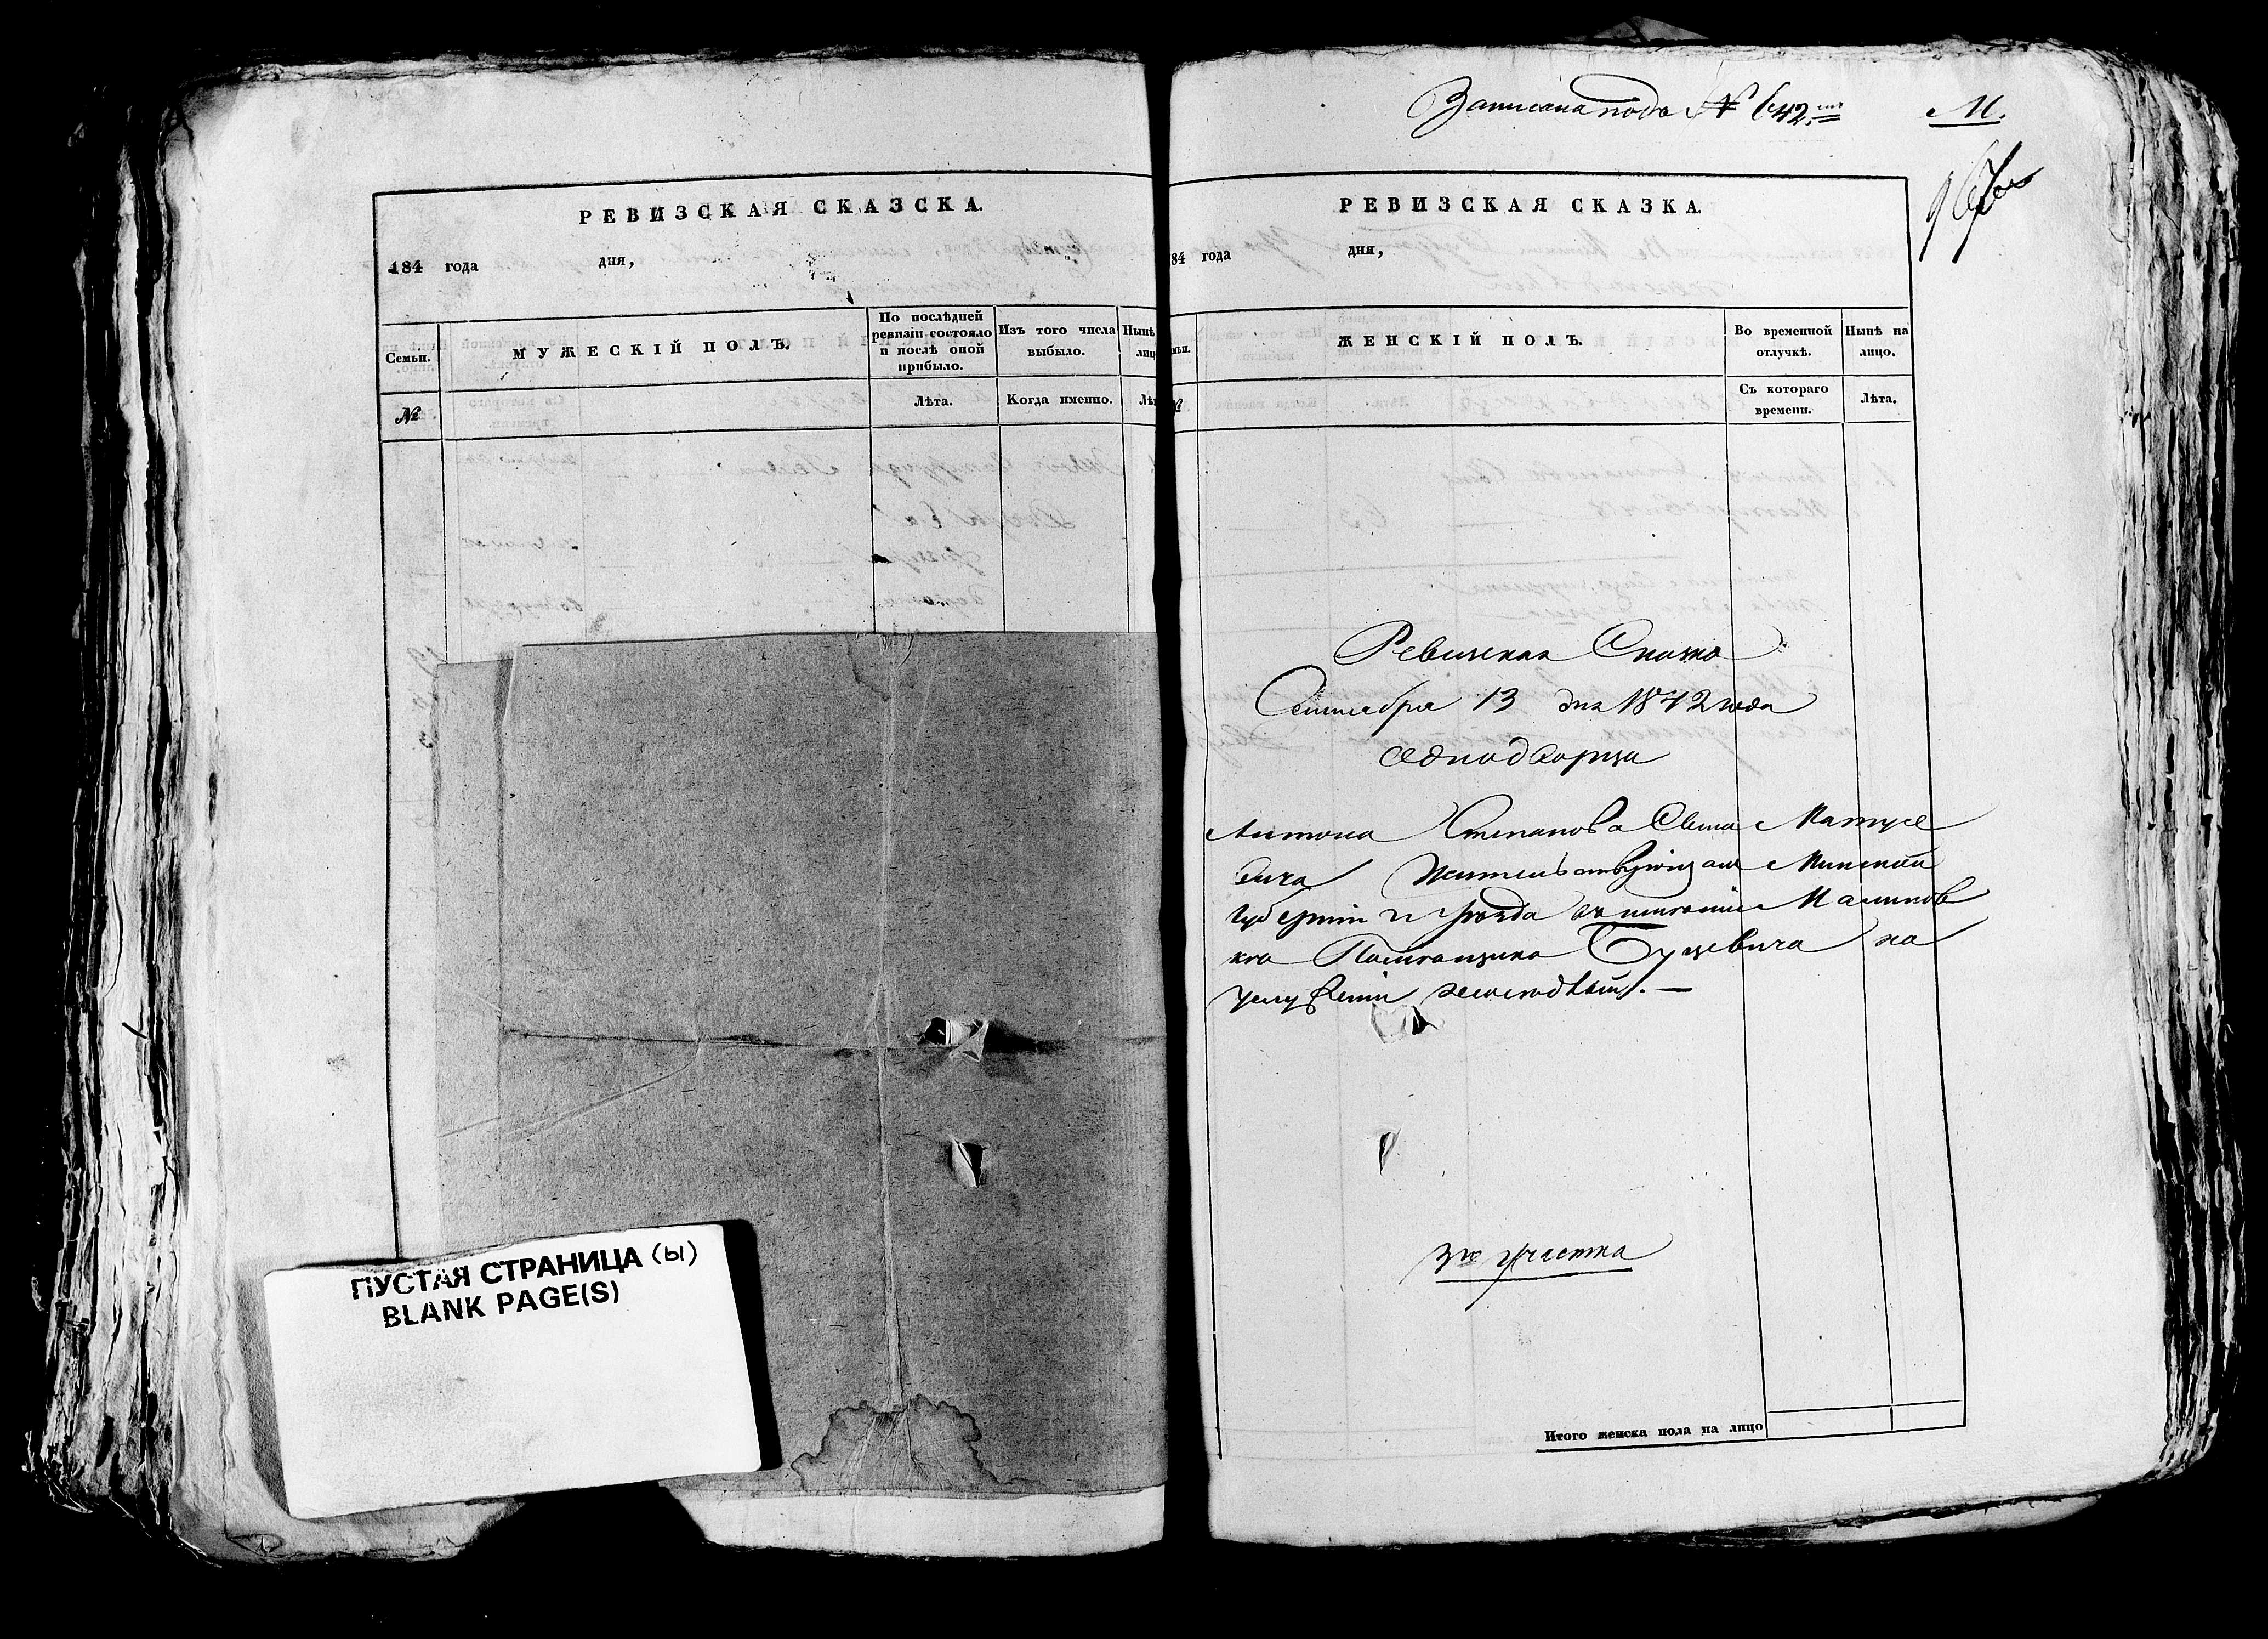 РЕВИЗСКАЯ СКАЗСКА.
184 года дня,
Семьи.
МУЖЕСКІЙ ПОЛЪ.
По послѣдней ревизіи состояло и послѣ оной прибыло.
Изъ того числа выбыло.
Нынѣ
лиц
№
Лѣта.
Когда именно.
Лѣт
ПУСТАЯ СТРАНИЦА (ы)
BLANK PAGE(S)
Записана подъ № 642.
М.
РЕВИЗСКАЯ СКАЗКА.
84 года дня,
ЖЕНСКІЙ ПОЛЪ.
Во временной отлучкѣ.
Нынѣ на лицо.
Съ котораго времени.
Лѣта.
Ревизская Сказка
Сентября 13 дня 1842 года
Однодворца
Антона Степанова Сына Матусе
вича Жительствующаго Минской
Губерніи и уѣзда въ имѣніи
Помѣщика на
условіи
3го участка
Итого женска пола на лицо